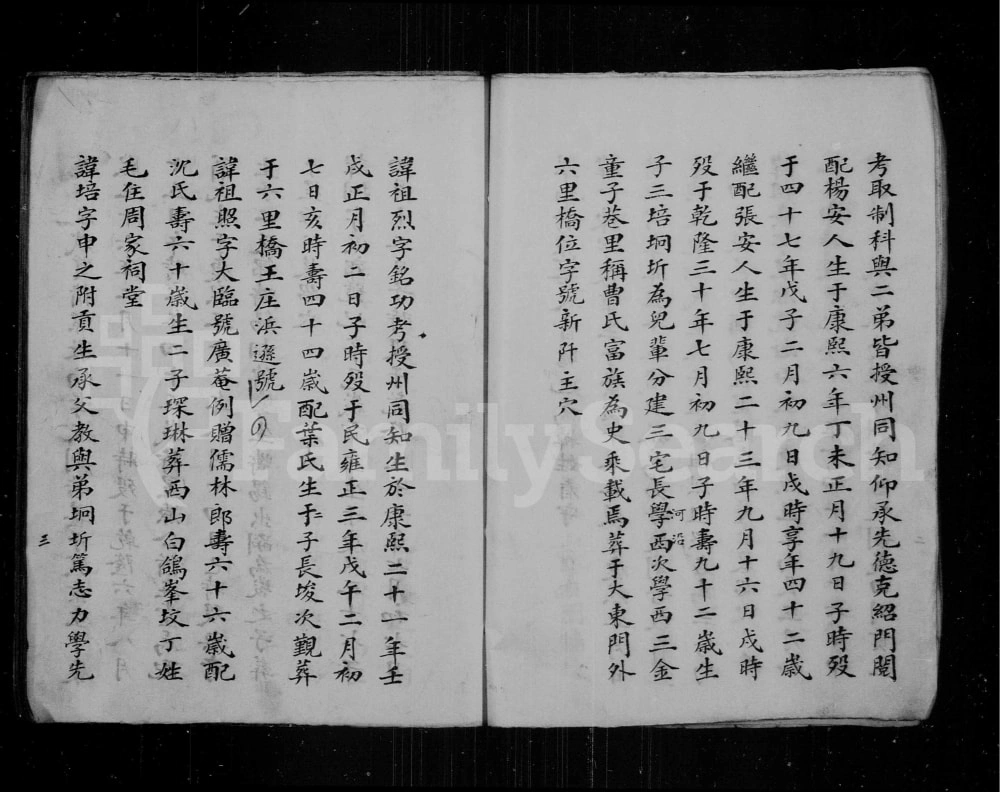 考取制科與二弟皆授州同知仰承先德克紹門閥
配楊安人生于康熙六年丁未正月十九日子時歿
于四十七年戊子二月初九日戌時享年四十二歲
繼配張安人生于康熙二十三年九月十六日戌時
歿于乾隆三十年七月初九日子時壽九十二歲生
子三培坰圻為兒輩分建三宅長學西次學西三金
河沿
童子巷里稱曹氏富族為史乘載焉葬于大東門外
六里橋位字號新阡主穴
二
諱祖烈字銘功考授州同知生於康熙二十一年壬
戌正月初二日子時歿于民雍正三年戊午二月初
七日亥時壽四十四歲配葉氏生子二子長埈次觀葬
于六里橋王庄浜遜號
諱祖照字大臨號廣菴例贈儒林郎壽六十六歲配
沈氏壽六十歲生二子琛琳葬西山白鴿峯坟丁姓
毛住周家祠堂
諱培字申之附貢生承父教與弟坰圻篤志力學先
三
FamilySearch